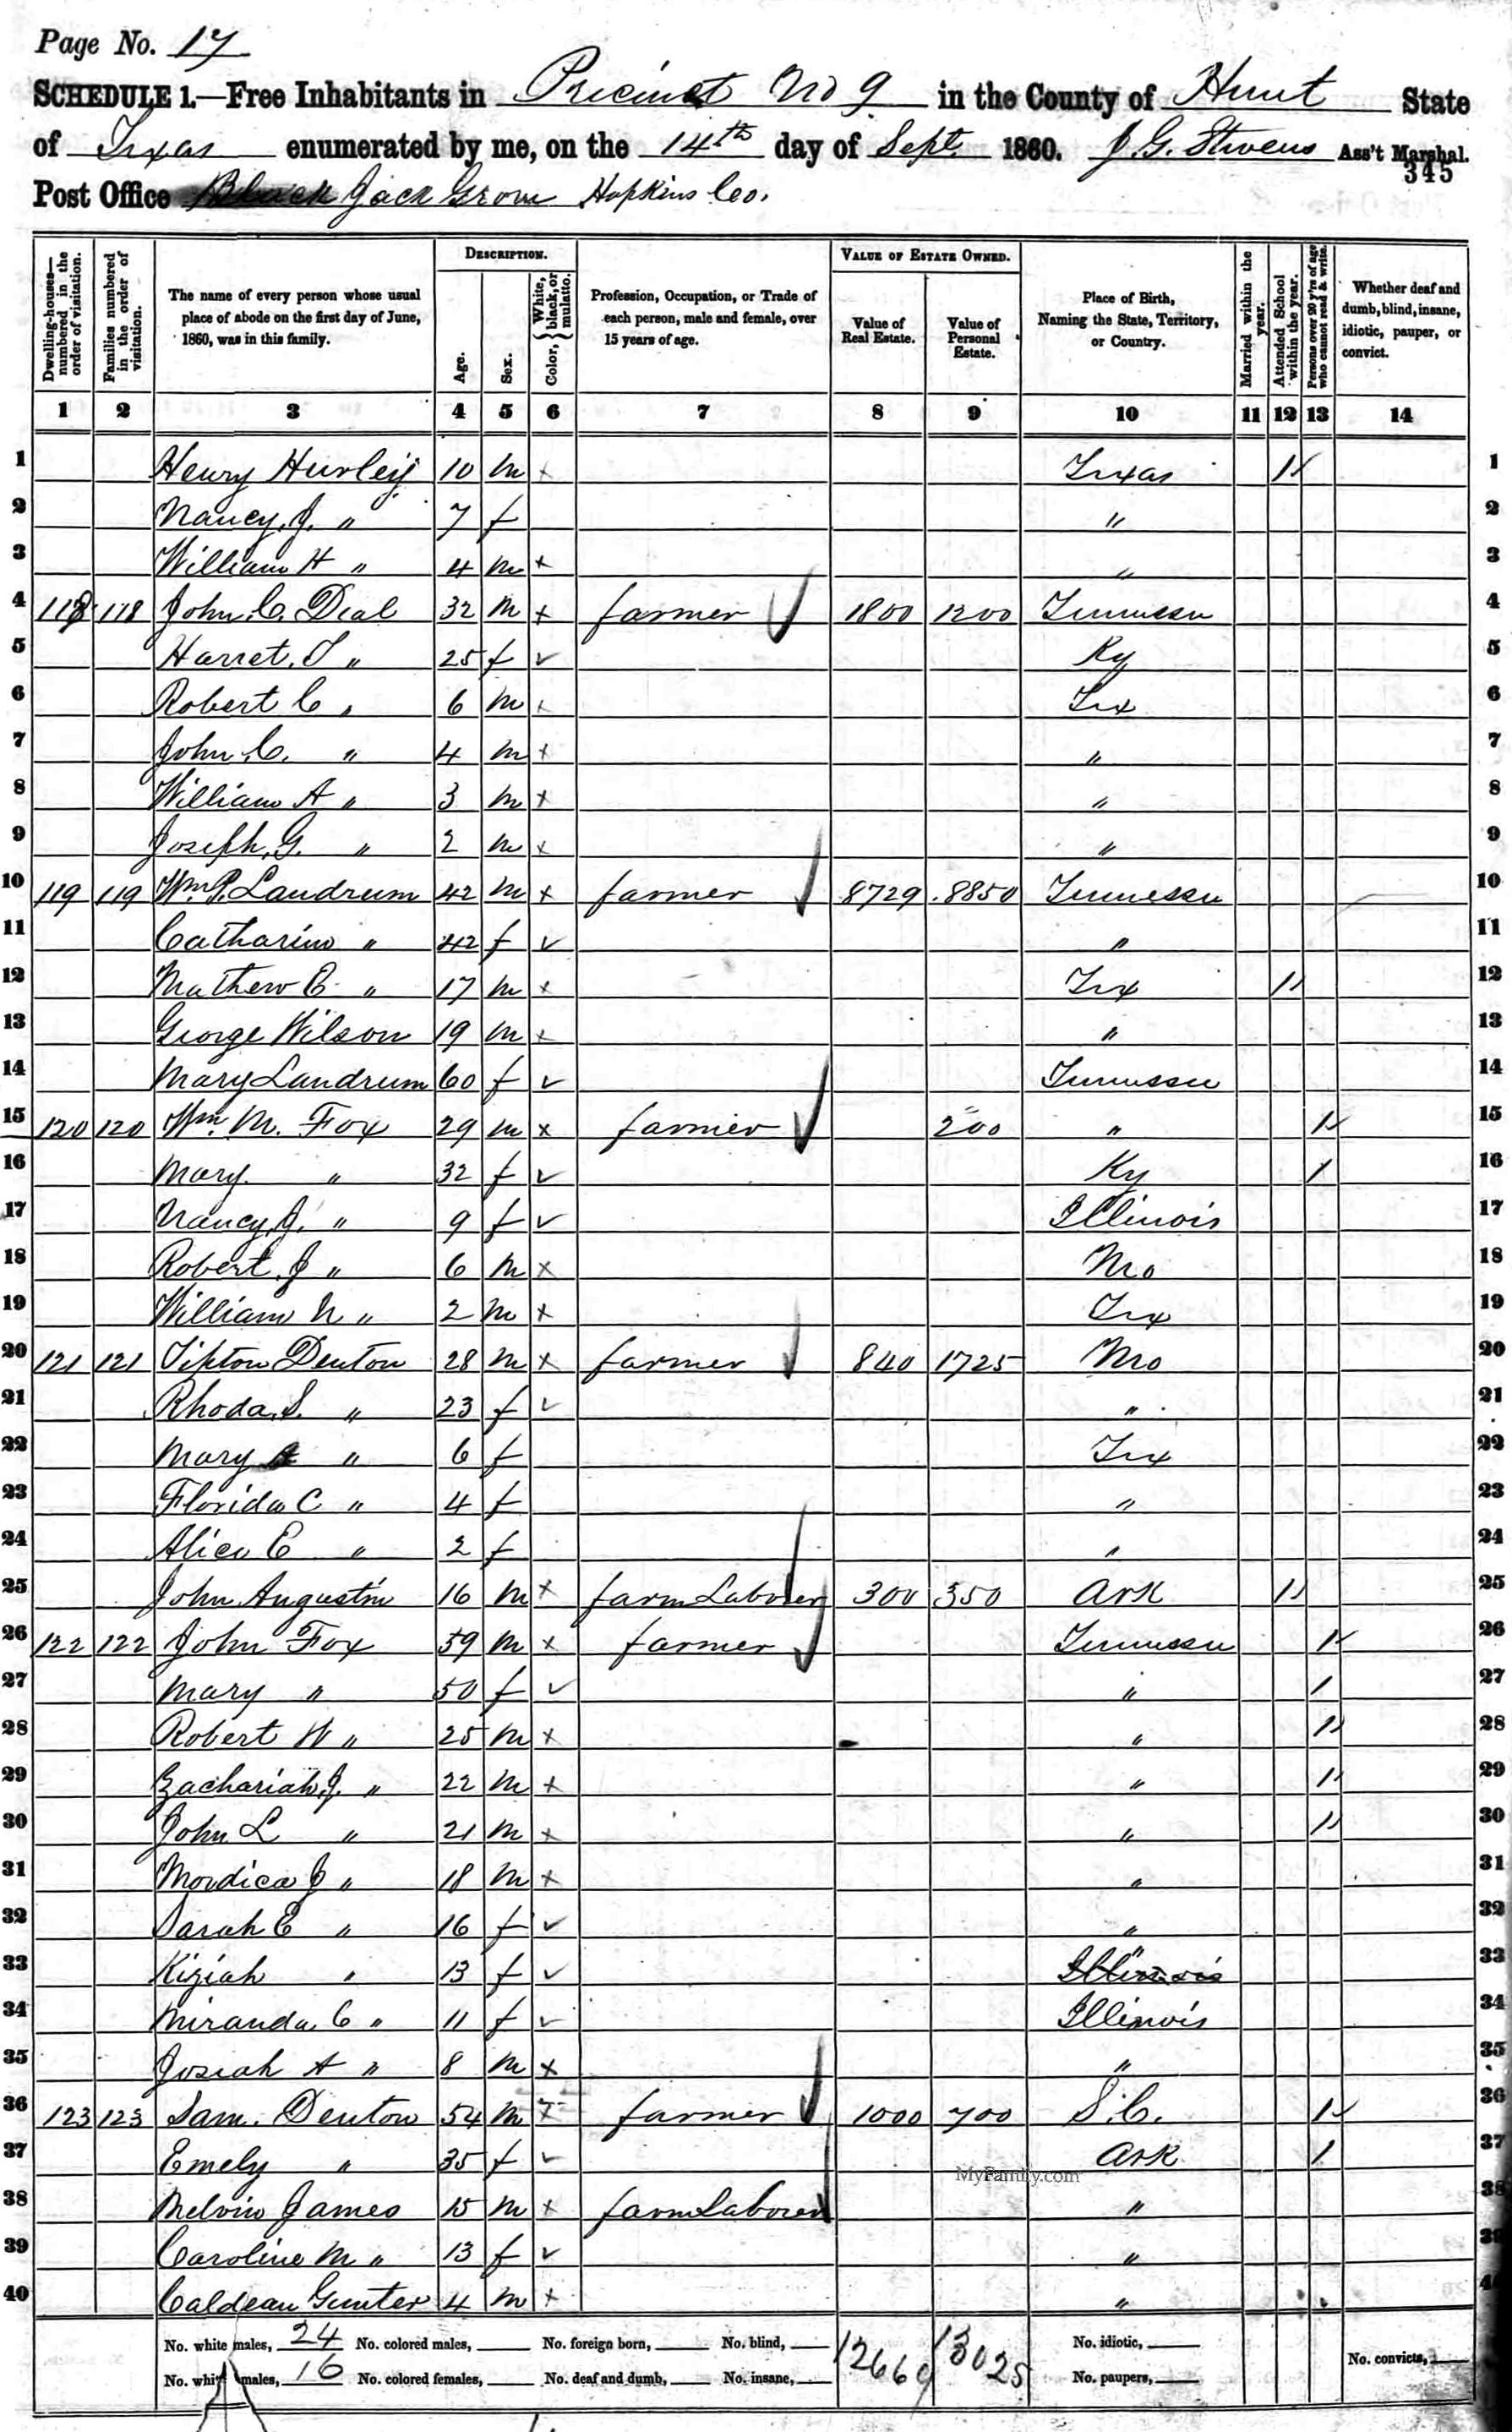 Page No. 17
SCHEDULE 1.—Free Inhabitants in Precinct No 9 in the County of Hunt State
of Texas enumerated by me, on the 14th day of Sept. 1860. J. G. Stevens Ass't Marshal.
345
Post Office Black Jack Grove Hopkins Co.
Dwelling-houses—numbered in the order of visitation.
Families numbered in the order of visitation.
The name of every person whose usual place of abode on the first day of June, 1860, was in this family.
DESCRIPTION.
Age.
Sex.
Color, { White, black, or mulatto.
Profession, Occupation, or Trade of each person, male and female, over 15 years of age.
VALUE OF ESTATE OWNED.
Value of Real Estate.
Value of Personal Estate.
Place of Birth, Naming the State, Territory, or Country.
Married within the year.
Attended School within the year.
Persons over 20 y'rs of age who cannot read & write.
Whether deaf and dumb, blind, insane, idiotic, pauper, or convict.
1 2 3 4 5 6 7 8 9 10 11 12 13 14
1 Henry Hurley 10 m Texas 1 1
2 Nancy J. " 7 f " 2
3 William H " 4 m " 3
4 118 118 John C. Deal 32 m farmer 1800 1200 Tennessee 4
5 Harret T " 25 f Ky 5
6 Robert C " 6 m Tex 6
7 John C. " 4 m " 7
8 William A " 3 m " 8
9 Joseph G. " 2 m " 9
10 119 119 Wm P. Landrum 42 m farmer 8729 8850 Tennessee 10
11 Catharine " 42 f " 11
12 Mathew E " 17 m Tex 1 12
13 George Wilson 19 m " 13
14 Mary Landrum 60 f Tennessee 14
15 120 120 Wm. M. Fox 29 m farmer 200 " 1 15
16 Mary " 32 f Ky 1 16
17 Nancy J. " 9 f Illinois 17
18 Robert J " 6 m Mo 18
19 William N " 2 m Tex 19
20 121 121 Tipton Denton 28 m farmer 840 1725 Mo 20
21 Rhoda S. " 23 f " 21
22 Mary A " 6 f Tex 22
23 Florida C " 4 f " 23
24 Alice E " 2 f " 24
25 John Augustin 16 m farm Laborer 300 350 Ark 1 25
26 122 122 John Fox 59 m farmer Tennessee 1 26
27 Mary " 50 f " 1 27
28 Robert W " 25 m " 1 28
29 Zachariah J. " 22 m " 1 29
30 John L " 21 m " 1 30
31 Mordica J " 18 m " 31
32 Sarah E " 16 f " 32
33 Kiziah " 13 f " Illinois 33
34 Miranda C " 11 f Illinois 34
35 Josiah A " 8 m " 35
36 123 123 Sam. Denton 54 m farmer 1000 700 S.C. 1 36
37 Emely " 35 f Ark 1 37
MyFamily.com
38 Melvin James 15 m farm Laborer " 38
39 Caroline M " 13 f " 39
40 Caldean Gunter 4 m " 4
No. white males, 24 No. colored males, No. foreign born, No. blind, 12669 13025 No. idiotic, No. convicts,
No. white females, 16 No. colored females, No. deaf and dumb, No. insane, No. paupers,